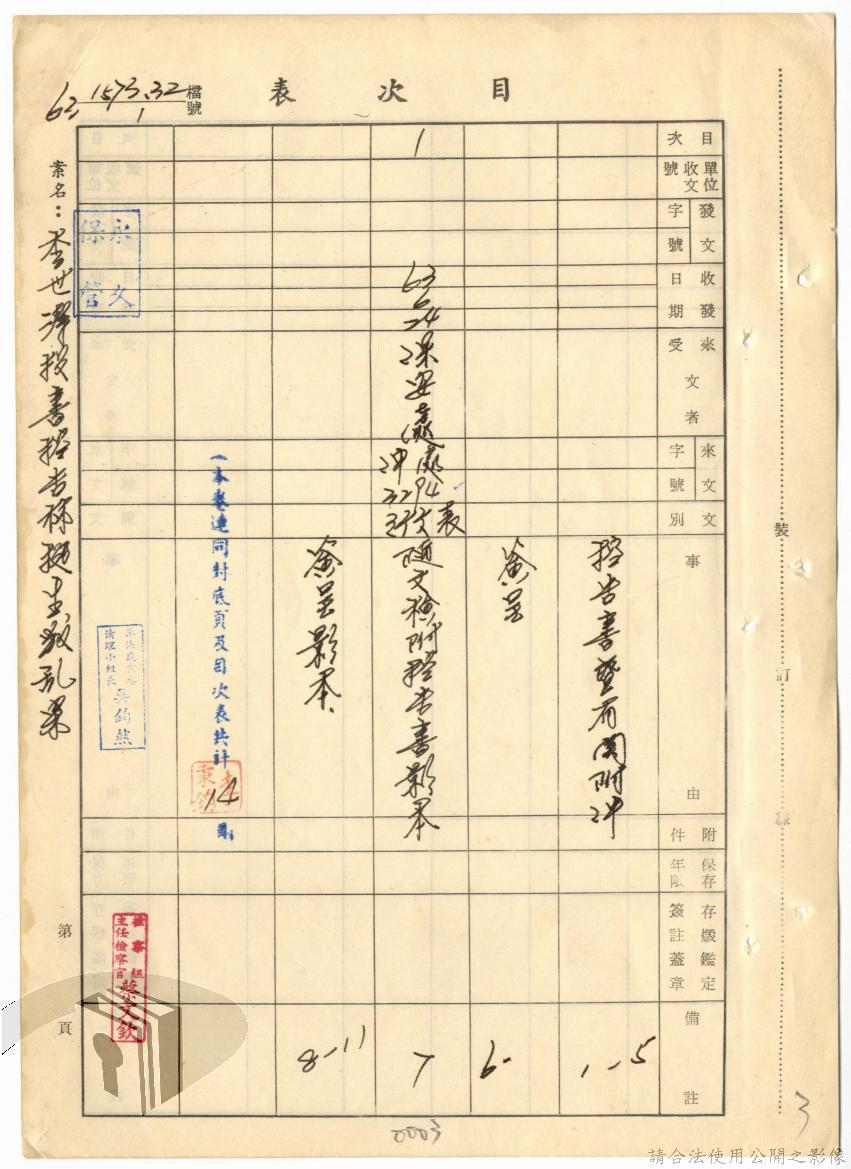 目次表
檔號
63 1573.32
1
案名：李世澤投書控告稱挺生叛亂案
永久保管
目次
單位收文號
發文字號
收發日期
來受文者
來文字號
文別
事由
附件
保存年限
存燬鑑定簽註蓋章
備註
控告書暨有關附件
1-5
簽呈
6-
1
63
6
24
保安處
3294
隨文檢附控告書影本
7
簽呈影本
8-11
本卷連同封底頁及目次表共計
14
清理小組長 吳鈞然
檢察組
主任檢察官 蔡文欽
第頁
裝訂線
0003
3
請合法使用公開之影像